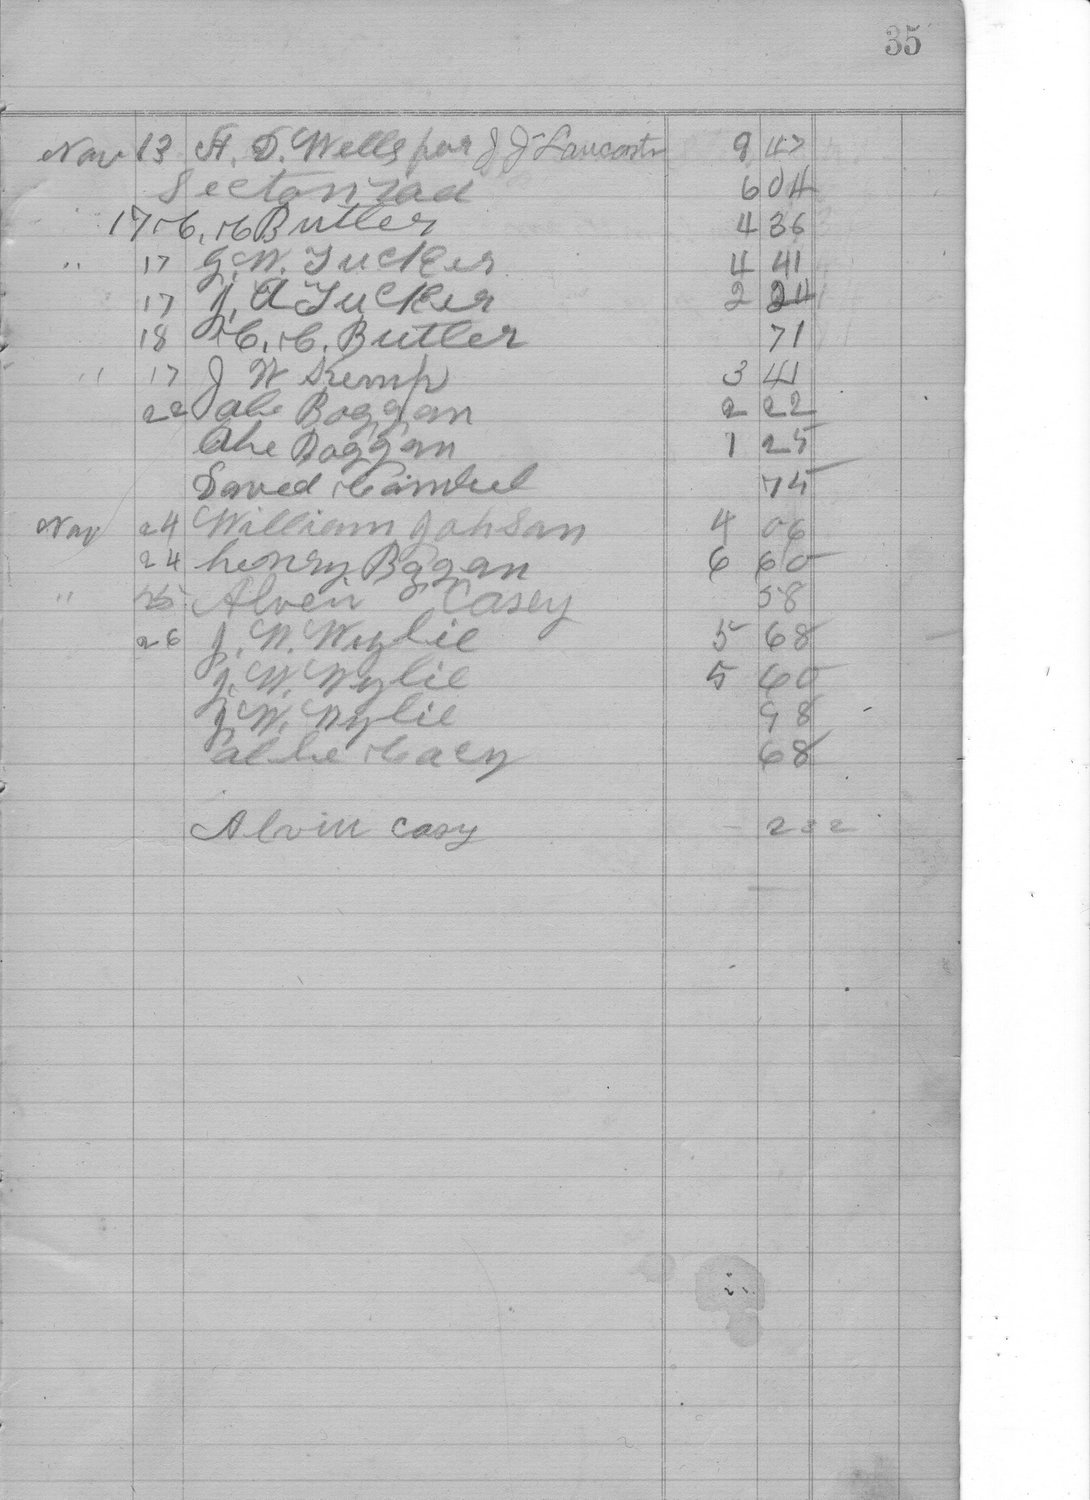 35
Nov 13 H. D. Wells per J J 9 47
6 04
17 H. H Butler 4 36
" 17 G. W. Tucker 4 41
17 J. A Tucker 2 24
18 H. H. Butler 71
" 17 J W Kemp 3 41
22 abe Boggan 2 22
Abe Boggan 1 25
Saved 75
Nov 24 William Johsan 4 06
24 henry Bggan 6 60
" 25 Alvein Casey 58
26 J. W. Wylie 5 68
J. W. Wylie 5 60
J. W. Wylie 98
68
Alvin Casy 2 32